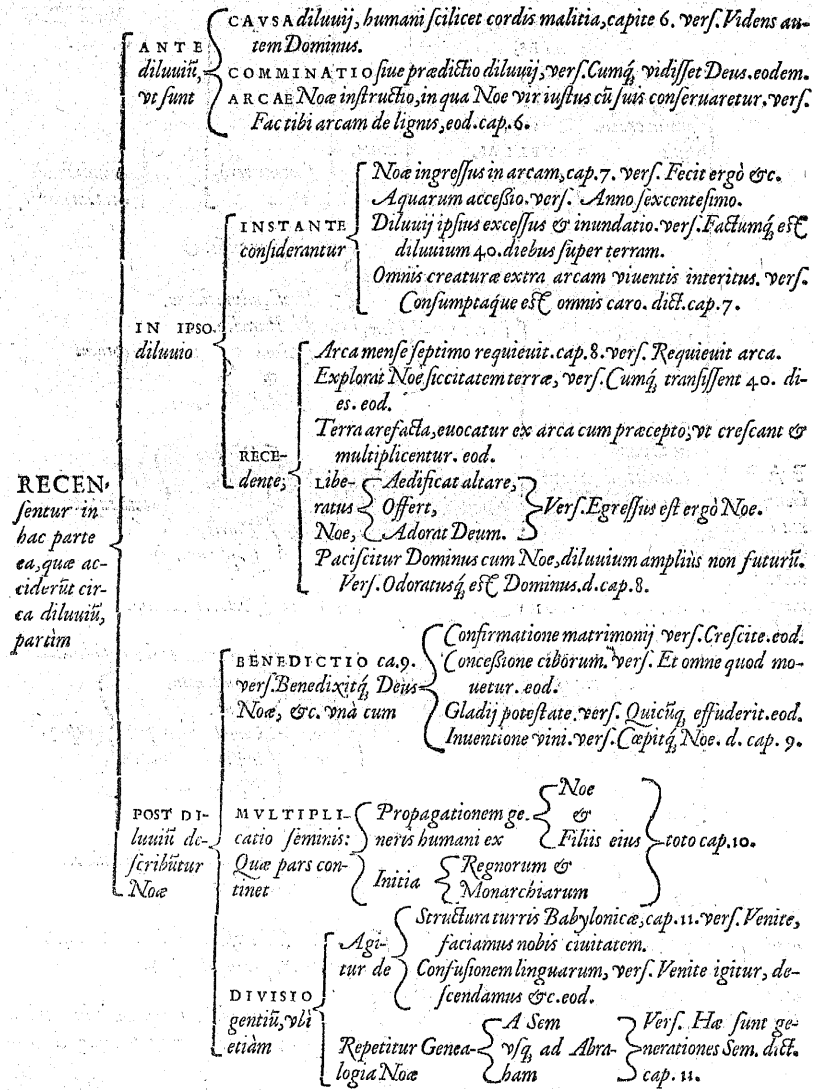 CAVSA diluuij, humani scilicet cordis malitia, capite 6. vers. Videns au-
tem Dominus.
ANTE
diluuiū,
vt sunt
COMMINATIO siue prædictio diluuij, vers. Cumq́; vidisset Deus. eodem.
ARCAE Noæ instructio, in qua Noe vir iustus cū suis conseruaretur. vers.
Fac tibi arcam de lignis, eod. cap. 6.
Noæ ingressus in arcam, cap. 7. vers. Fecit ergò &c.
Aquarum accessio. vers. Anno sexcentesimo.
INSTANTE
considerantur
Diluuij ipsius excessus & inundatio. vers. Factumq́; est
diluuium 40. diebus super terram.
Omnis creaturæ extra arcam viuentis interitus. vers.
Consumptaque est omnis caro. dict. cap. 7.
IN IPSO
diluuio
Arca mense septimo requieuit. cap. 8. vers. Requieuit arca.
Explorat Noe siccitatem terræ, vers. Cumq́; transissent 40. di-
es. eod.
Terra arefacta, euocatur ex arca cum præcepto, vt crescant &
multiplicentur. eod.
RECE-
dente,
Libe-
ratus
Noe,
Aedificat altare,
Offert,
Adorat Deum.
Vers. Egressus est ergò Noe.
Paciscitur Dominus cum Noe, diluuium ampliùs non futurū.
Vers. Odoratusq́; est Dominus. d. cap. 8.
RECEN-
sentur in
hac parte
ea, quæ ac-
ciderūt cir-
ca diluuiū,
partìm
BENEDICTIO ca. 9.
vers. Benedixitq́; Deus
Noæ, &c. vnà cum
Confirmatione matrimonij vers. Crescite. eod.
Concessione ciborum. vers. Et omne quod mo-
uetur. eod.
Gladij potestate. vers. Quicūq; effuderit. eod.
Inuentione vini. vers. Cœpitq́; Noe. d. cap. 9.
POST DI-
luuiū de-
scribūtur
Noæ
MVLTIPLI-
catio seminis:
Quæ pars con-
tinet
Propagationem ge-
neris humani ex
Noe
&
Filiis eius
Initia
Regnorum &
Monarchiarum
toto cap. 10.
DIVISIO
gentiū, vbi
etiàm
Agi-
tur de
Structura turris Babylonicæ, cap. 11. vers. Venite,
faciamus nobis ciuitatem.
Confusionem linguarum, vers. Venite igitur, de-
scendamus &c. eod.
Repetitur Genea-
logia Noæ
A Sem
vsq; ad Abra-
ham
Vers. Hæ sunt ge-
nerationes Sem. dict.
cap. 11.